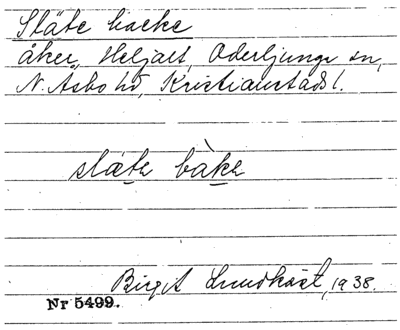 Släte backe
åker, Heljalt, Oderljunga sn,
N. Åsbo hd, Kristianstads l.
släte bàke
Birgit Lundkvist, 1938.
Nr 5499.